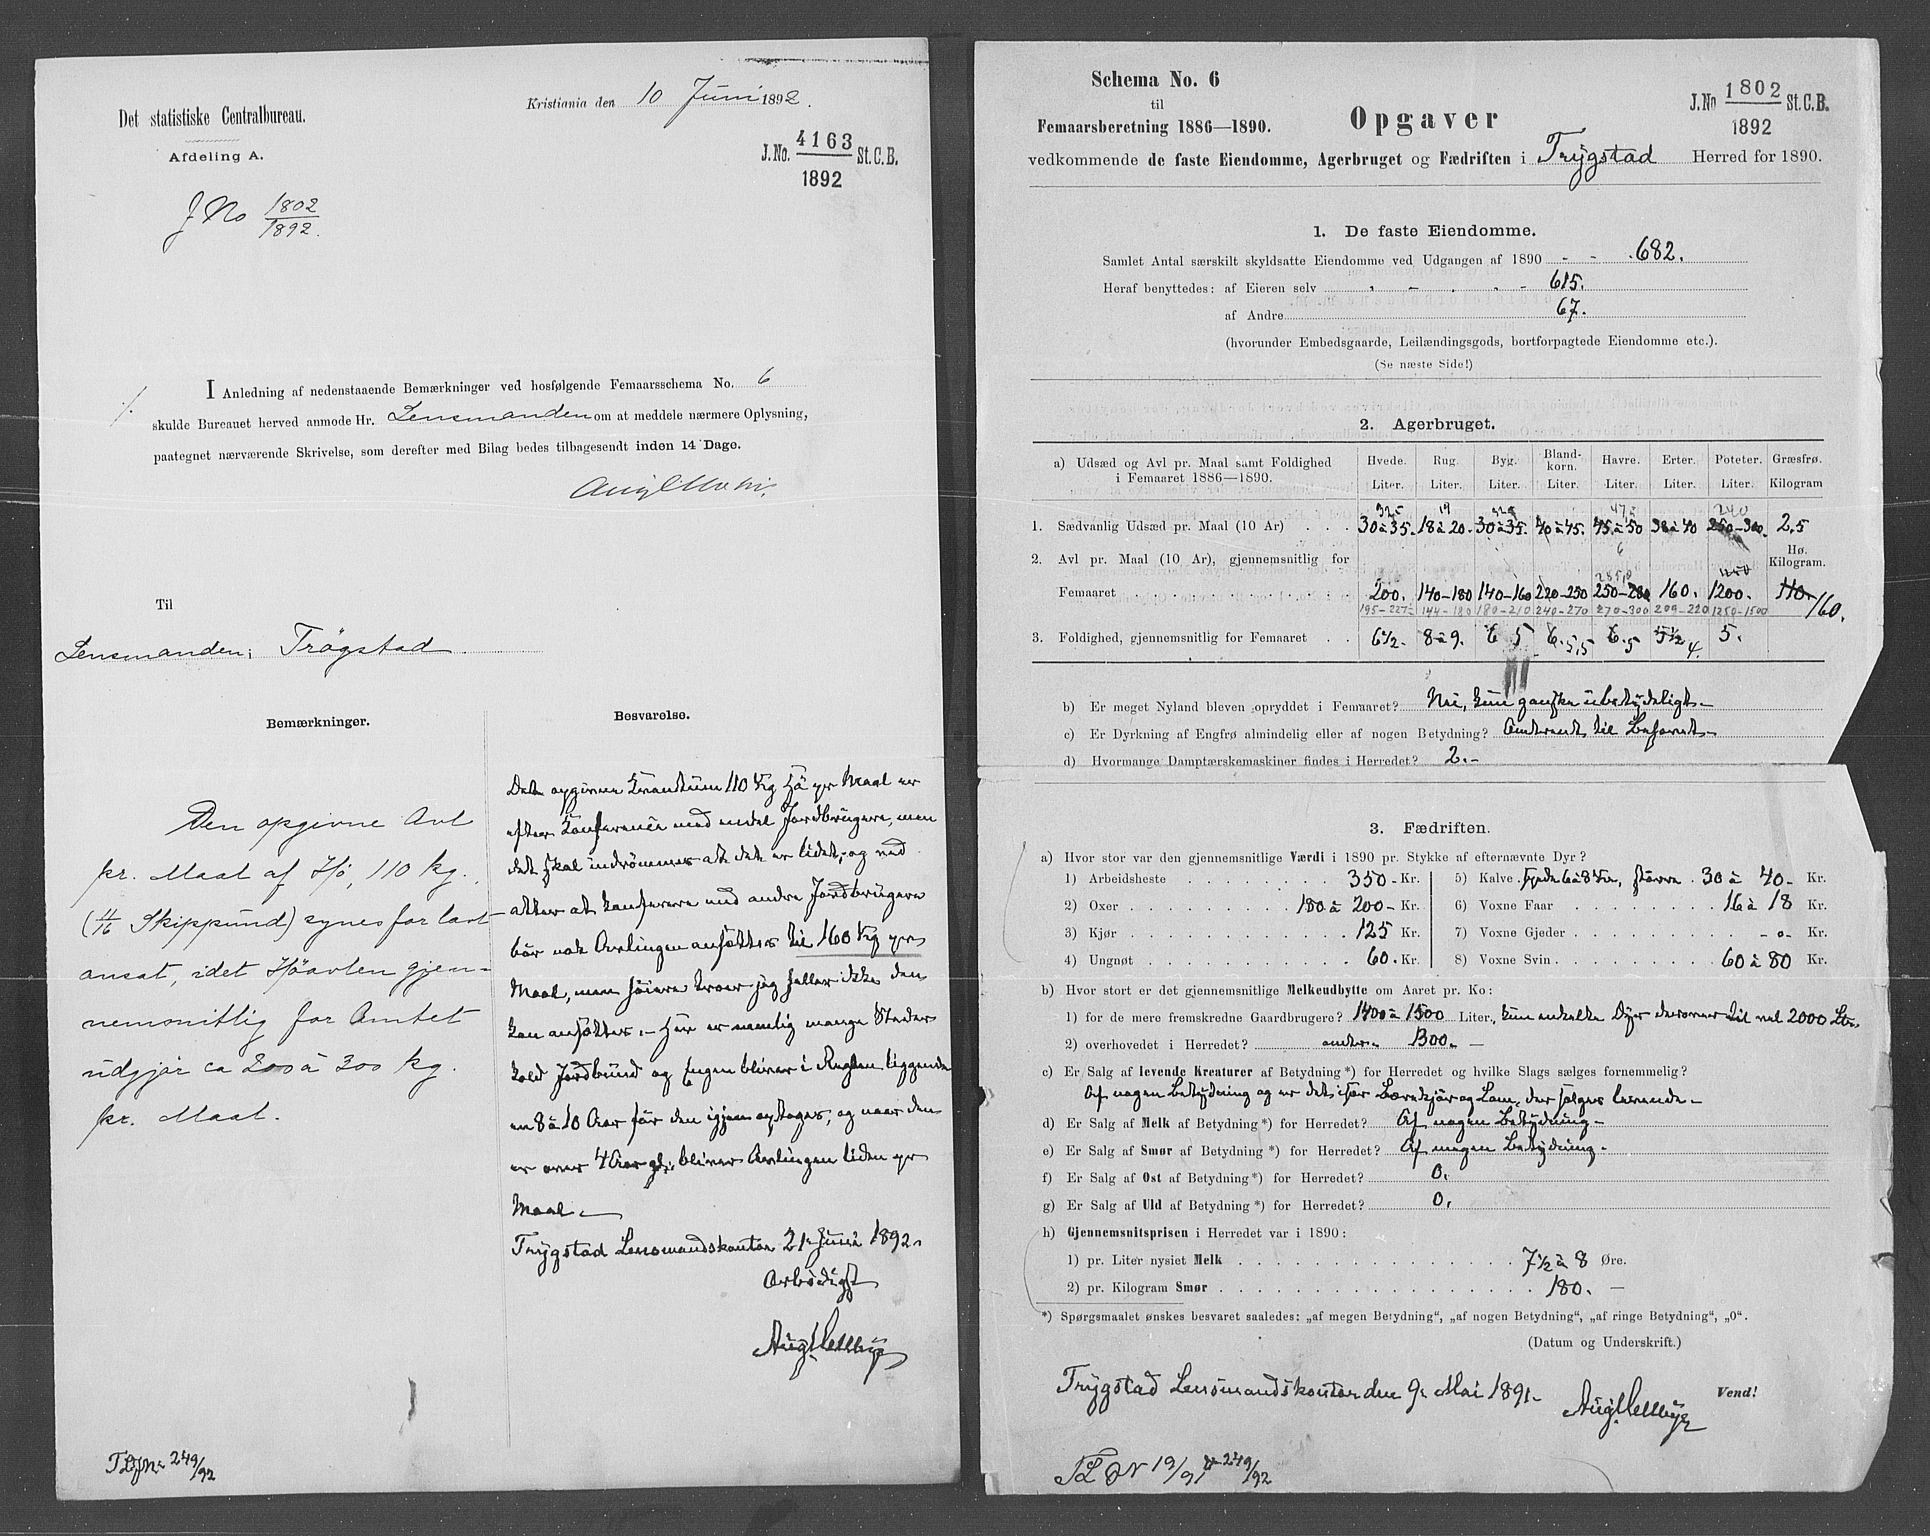 Det statistiske Centralbureau.
Afdeling A.
Kristiania den 10 Juni 1892.
J. No. 4163 St. C. B.
1892
J No 1802
1892.
I Anledning af nedenstaaende Bemærkninger ved hosfølgende Femaarsschema No. 6
skulde Bureauet herved anmode Hr. Lensmanden om at meddele nærmere Oplysning,
paategnet nærværende Skrivelse, som derefter med Bilag bedes tilbagesendt inden 14 Dage.
Til
Lensmanden i Trøgstad.
Bemærkninger.
Den opgivne Avl
pr. Maal af Hø, 110 kg.
(11/16 Skippund) synes for lavt
ansat, idet Høavlen gjen-
nemsnitlig for Amtet
udgjør ca 200 à 300 kg.
pr. Maal.
Besvarelse.
Det opgivne Kvantum 110 Kg Hø pr Maal er
efter Konference med endel Jordbrugere, men
det skal indrømmes at det er lidet, og ved
atter at konferere med andre Jordbrugere
bør nok Avlingen ansættes til 160 Kg pr
Maal, men høiere tror jeg heller ikke den
kan ansættes. - Her er nemlig mange Steder
kold Jordbund og Engen bliver i Reglen liggende
en 8 à 10 Aar før den igjen optages, og naar den
er over 4 Aar gl. bliver Avlingen liden pr
Maal. -
Trygstad Lensmandskontor 21 Juni 1892.
Ærbødigst
Aug. Mellbye
TLJNr 249/92
Schema No. 6
til
Femaarsberetning 1886—1890.
Opgaver
J. No 1802 St. C. B.
1892
vedkommende de faste Eiendomme, Agerbruget og Fædriften i Trygstad Herred for 1890.
1. De faste Eiendomme.
Samlet Antal særskilt skyldsatte Eiendomme ved Udgangen af 1890 - - 682.
Heraf benyttedes: af Eieren selv 615.
af Andre 67.
(hvorunder Embedsgaarde, Leilændingsgods, bortforpagtede Eiendomme etc.).
(Se næste Side!)
2. Agerbruget.
a) Udsæd og Avl pr. Maal samt Foldighed i Femaaret 1886—1890.
Hvede. Rug. Byg. Bland-korn. Havre. Erter. Poteter. Græsfrø.
Liter. Liter. Liter. Liter. Liter. Liter. Liter. Kilogram
32,5 19 32,5 47,5 240
1. Sædvanlig Udsæd pr. Maal (10 Ar) . . . 30 à 35. 18 à 20. 30 à 35. 40 à 45. 45 à 50 38 à 40 250-300. 2,5
Hø.
Kilogram.
2. Avl pr. Maal (10 Ar), gjennemsnitlig for
1250
Femaaret 200. 140-180 140-160 220-250 250-280 160. 1200. 110. 160.
195-227½ 144-180 180-210 240-270 270-300 209-220 1250-1500
3. Foldighed, gjennemsnitlig for Femaaret . . 6½. 8 à 9. 6 5 6. 5,5 6. 5 5½ 4. 5.
b) Er meget Nyland bleven opryddet i Femaaret? Nei, kun ganske ubetydeligt. -
c) Er Dyrkning af Engfrø almindelig eller af nogen Betydning? Omtrent til Behovet. -
d) Hvormange Damptærskemaskiner findes i Herredet? 2. -
3. Fædriften.
a) Hvor stor var den gjennemsnitlige Værdi i 1890 pr. Stykke af efternævnte Dyr?
1) Arbeidsheste 350 - Kr.
2) Oxer 180 à 200 - Kr.
3) Kjør 125 Kr.
4) Ungnøt 60. Kr.
5) Kalve spæde 6 à 8 Kr., større . 30 à 40 - Kr.
6) Voxne Faar 16 à 18 Kr.
7) Voxne Gjeder - 0 - Kr.
8) Voxne Svin 60 à 80 Kr.
b) Hvor stort er det gjennemsnitlige Melkeudbytte om Aaret pr. Ko:
1) for de mere fremskredne Gaardbrugere? 1400 à 1500 Liter, kun enkelte Dyr derover til vel 2000 Ltr.
2) overhovedet i Herredet? 1300. —
c) Er Salg af levende Kreaturer af Betydning*) for Herredet og hvilke Slags sælges fornemmelig?
Af nogen Betydning og er det især Bærekjør og Lam, der sælges levende. -
d) Er Salg af Melk af Betydning*) for Herredet? Af nogen Betydning. -
e) Er Salg af Smør af Betydning*) for Herredet? Af nogen Betydning. -
f) Er Salg af Ost af Betydning*) for Herredet? 0.
g) Er Salg af Uld af Betydning*) for Herredet? 0.
h) Gjennemsnitsprisen i Herredet var i 1890:
1) pr. Liter nysiet Melk 7½ à 8 Øre.
2) pr. Kilogram Smør 180. —
*) Spørgsmaalet ønskes besvaret saaledes: „af megen Betydning“, „af nogen Betydning“, „af ringe Betydning“, „0“.
(Datum og Underskrift.)
Trygstad Lensmandskontor den 9. Mai 1891.
Aug. Mellbye
Vend!
TLJN 19/91 249/92